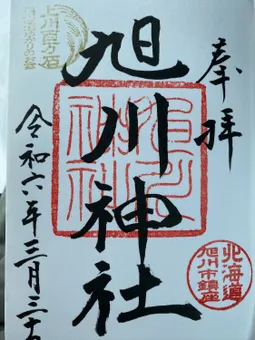 奉拝
旭川神社
令和六年三月三十
北海道
旭川市鎮座
上川百万石